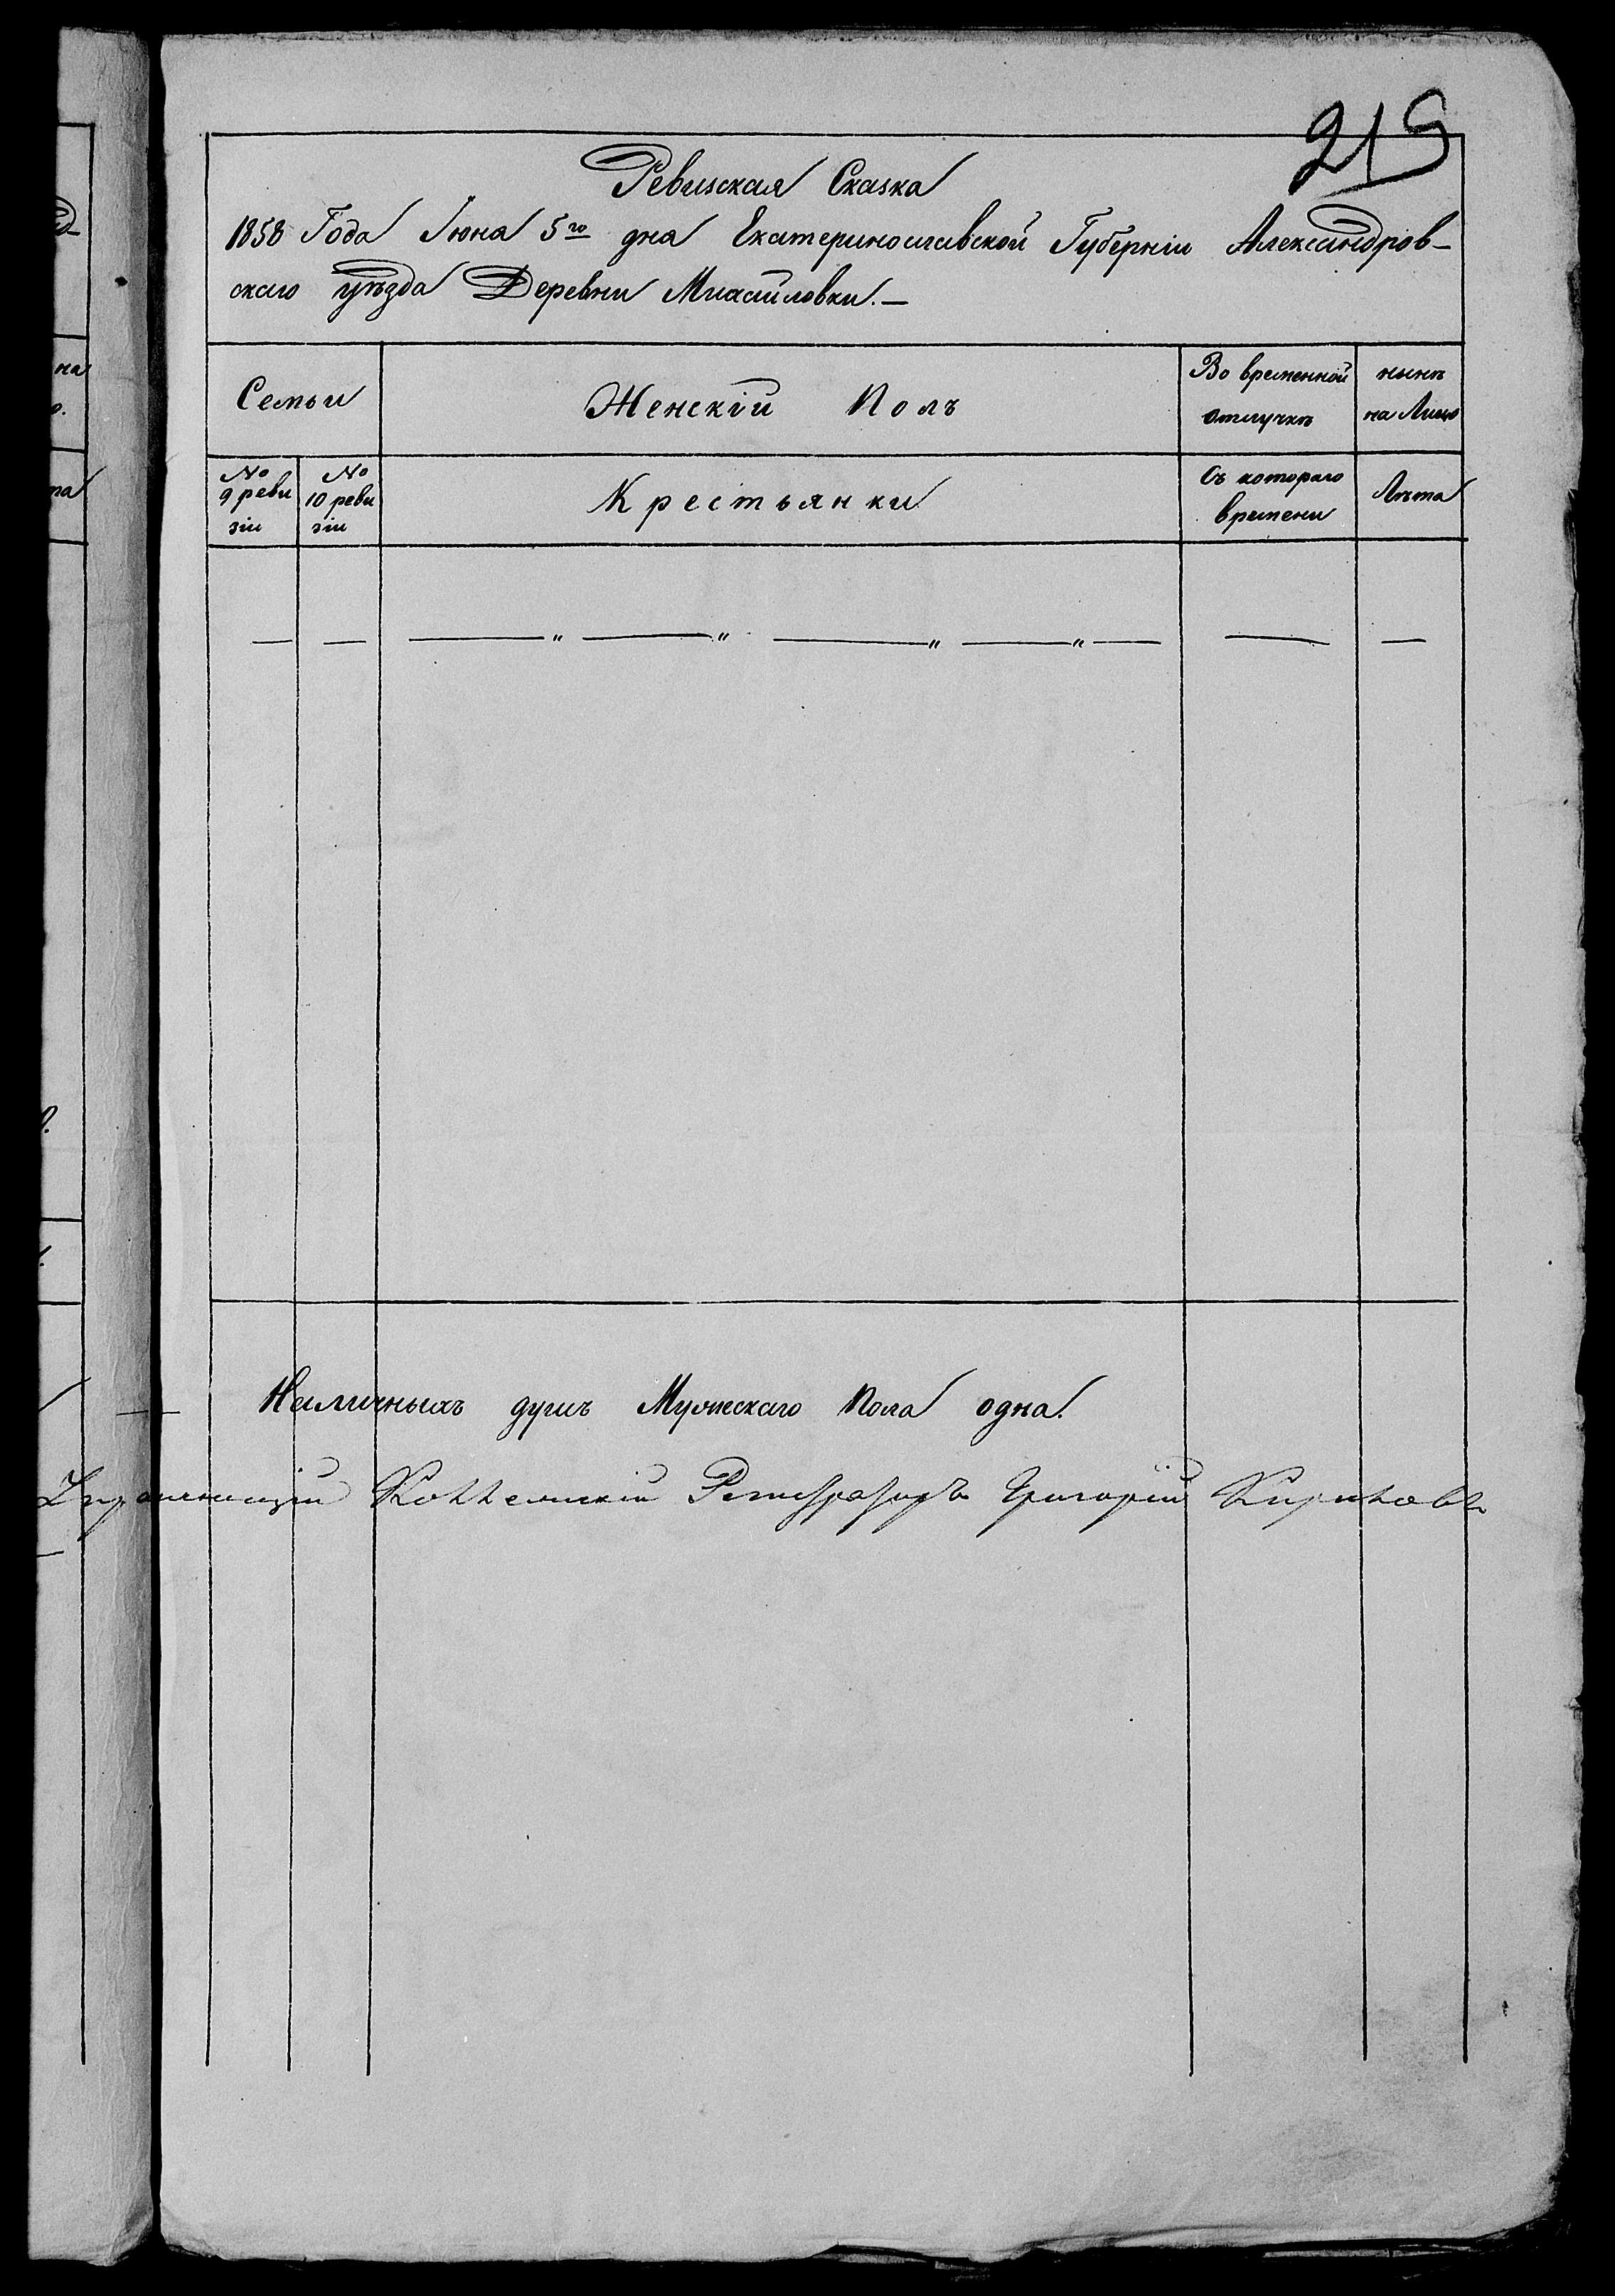 219
Ревизская Сказка
1858 Года Июня 5го дня Екатеринославской Губерніи Александров-
скаго уѣзда Деревни Михайловки.—
Семьи
Женскій Полъ
Во временной
отлучкѣ
нынѣ
на Лицо
№
9 реви
зіи
№
10 реви
зіи
Крестьянки
Съ котораго
времени
Лѣта
Наличныхъ душъ Мужескаго Пола одна.
Управляющій Коллежскій Регистраторъ Григорій